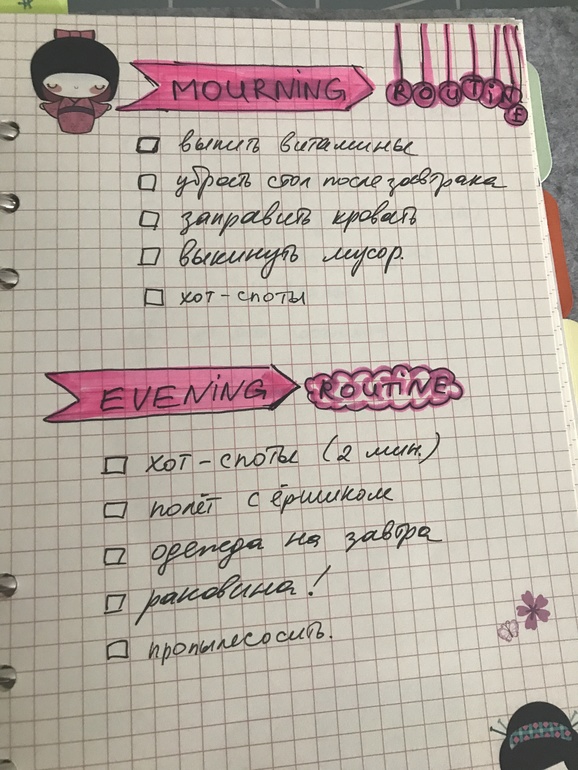 MOURNING ROUTINE
выпить витамины
убрать стол после завтрака
заправить кровать
выкинуть мусор.
хот-споты
EVENING ROUTINE
хот-споты (2 мин.)
полёт с ёршиком
одежда на завтра
раковина!
пропылесосить.